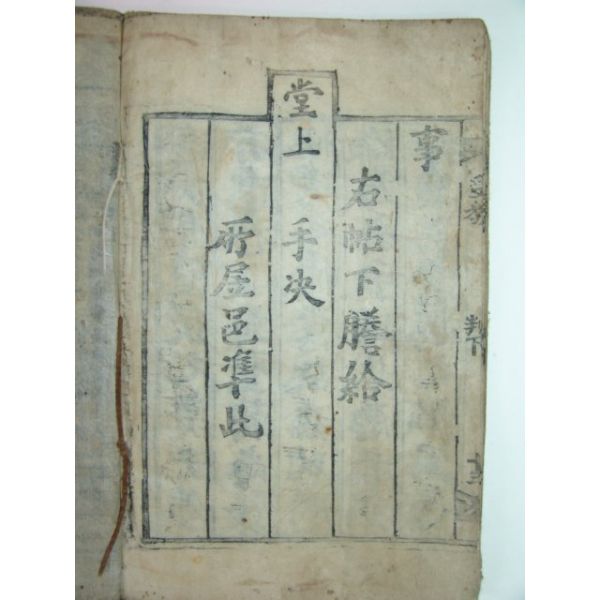 事
右帖下謄給
堂上手决
所屋邑準此